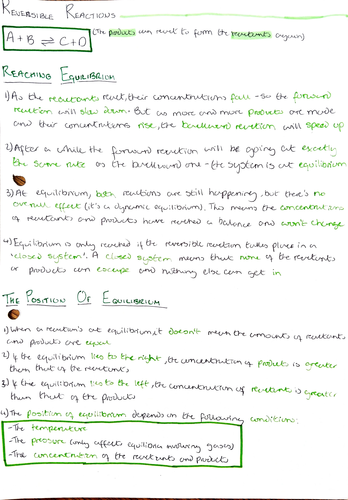 REVERSIBLE REACTIONS
A + B ⇌ C + D (The products can react to form the reactants again)
REACHING EQUILIBRIUM
1) As the reactants react, their concentrations fall - so the forward
reaction will slow down. But as more and more products are made
and their concentrations rise, the backward reaction will speed up
2) After a while the forward reaction will be going at exactly
the same rate as the backward one - the system is at equilibrium
3) At equilibrium, both reactions are still happening, but there's no
overall effect (it's a dynamic equilibrium). This means the concentrations
of reactants and products have reached a balance and won't change
4) Equilibrium is only reached if the reversible reaction takes place in a
'closed system'. A closed system means that none of the reactants
or products can escape and nothing else can get in
THE POSITION OF EQUILIBRIUM
1) When a reaction's at equilibrium it doesn't mean the amounts of reactants
and products are equal
2) If the equilibrium lies to the right, the concentration of products is greater
than that of the reactants
3) If the equilibrium lies to the left, the concentration of reactants is greater
than that of the products
4) The position of equilibrium depends on the following conditions:
-The temperature
-The pressure (only affects equilibria involving gases)
-The concentration of the reactants and products